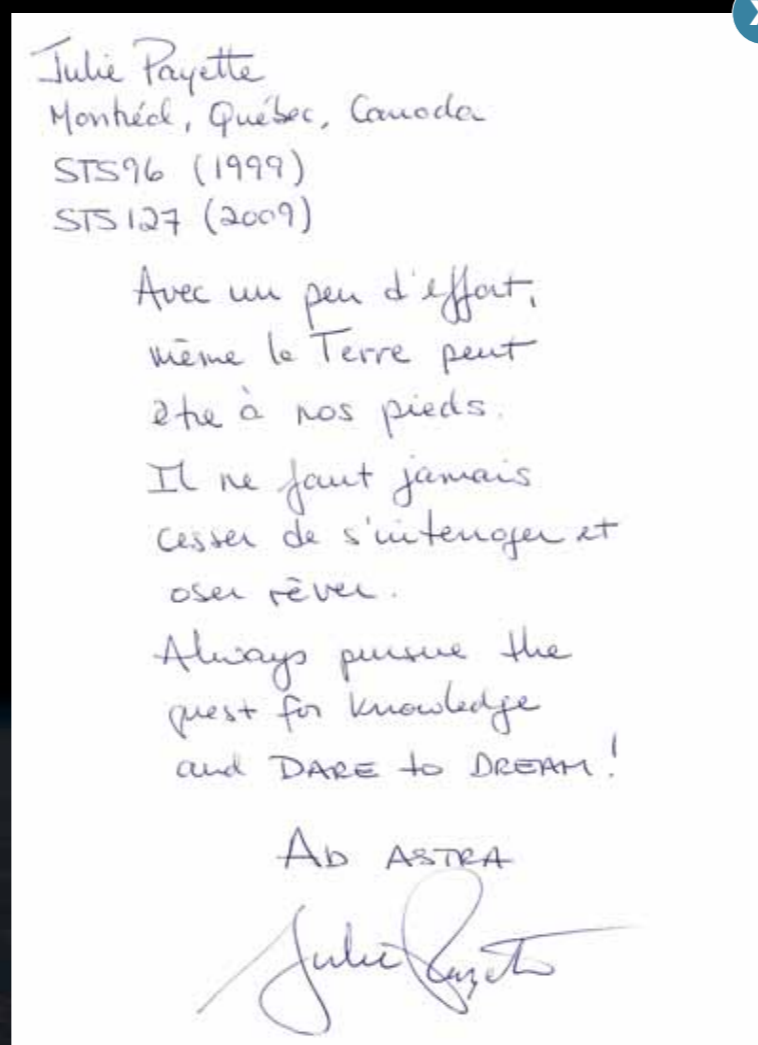 Julie Payette
Montréal, Québec, Canada
STS96 (1999)
STS127 (2009)
Avec un peu d'effort,
même la Terre peut
être à nos pieds.
Il ne faut jamais
cesser de s'interroger et
oser rêver.
Always pursue the
quest for knowledge
and DARE to DREAM!
AD ASTRA
Julie Payette